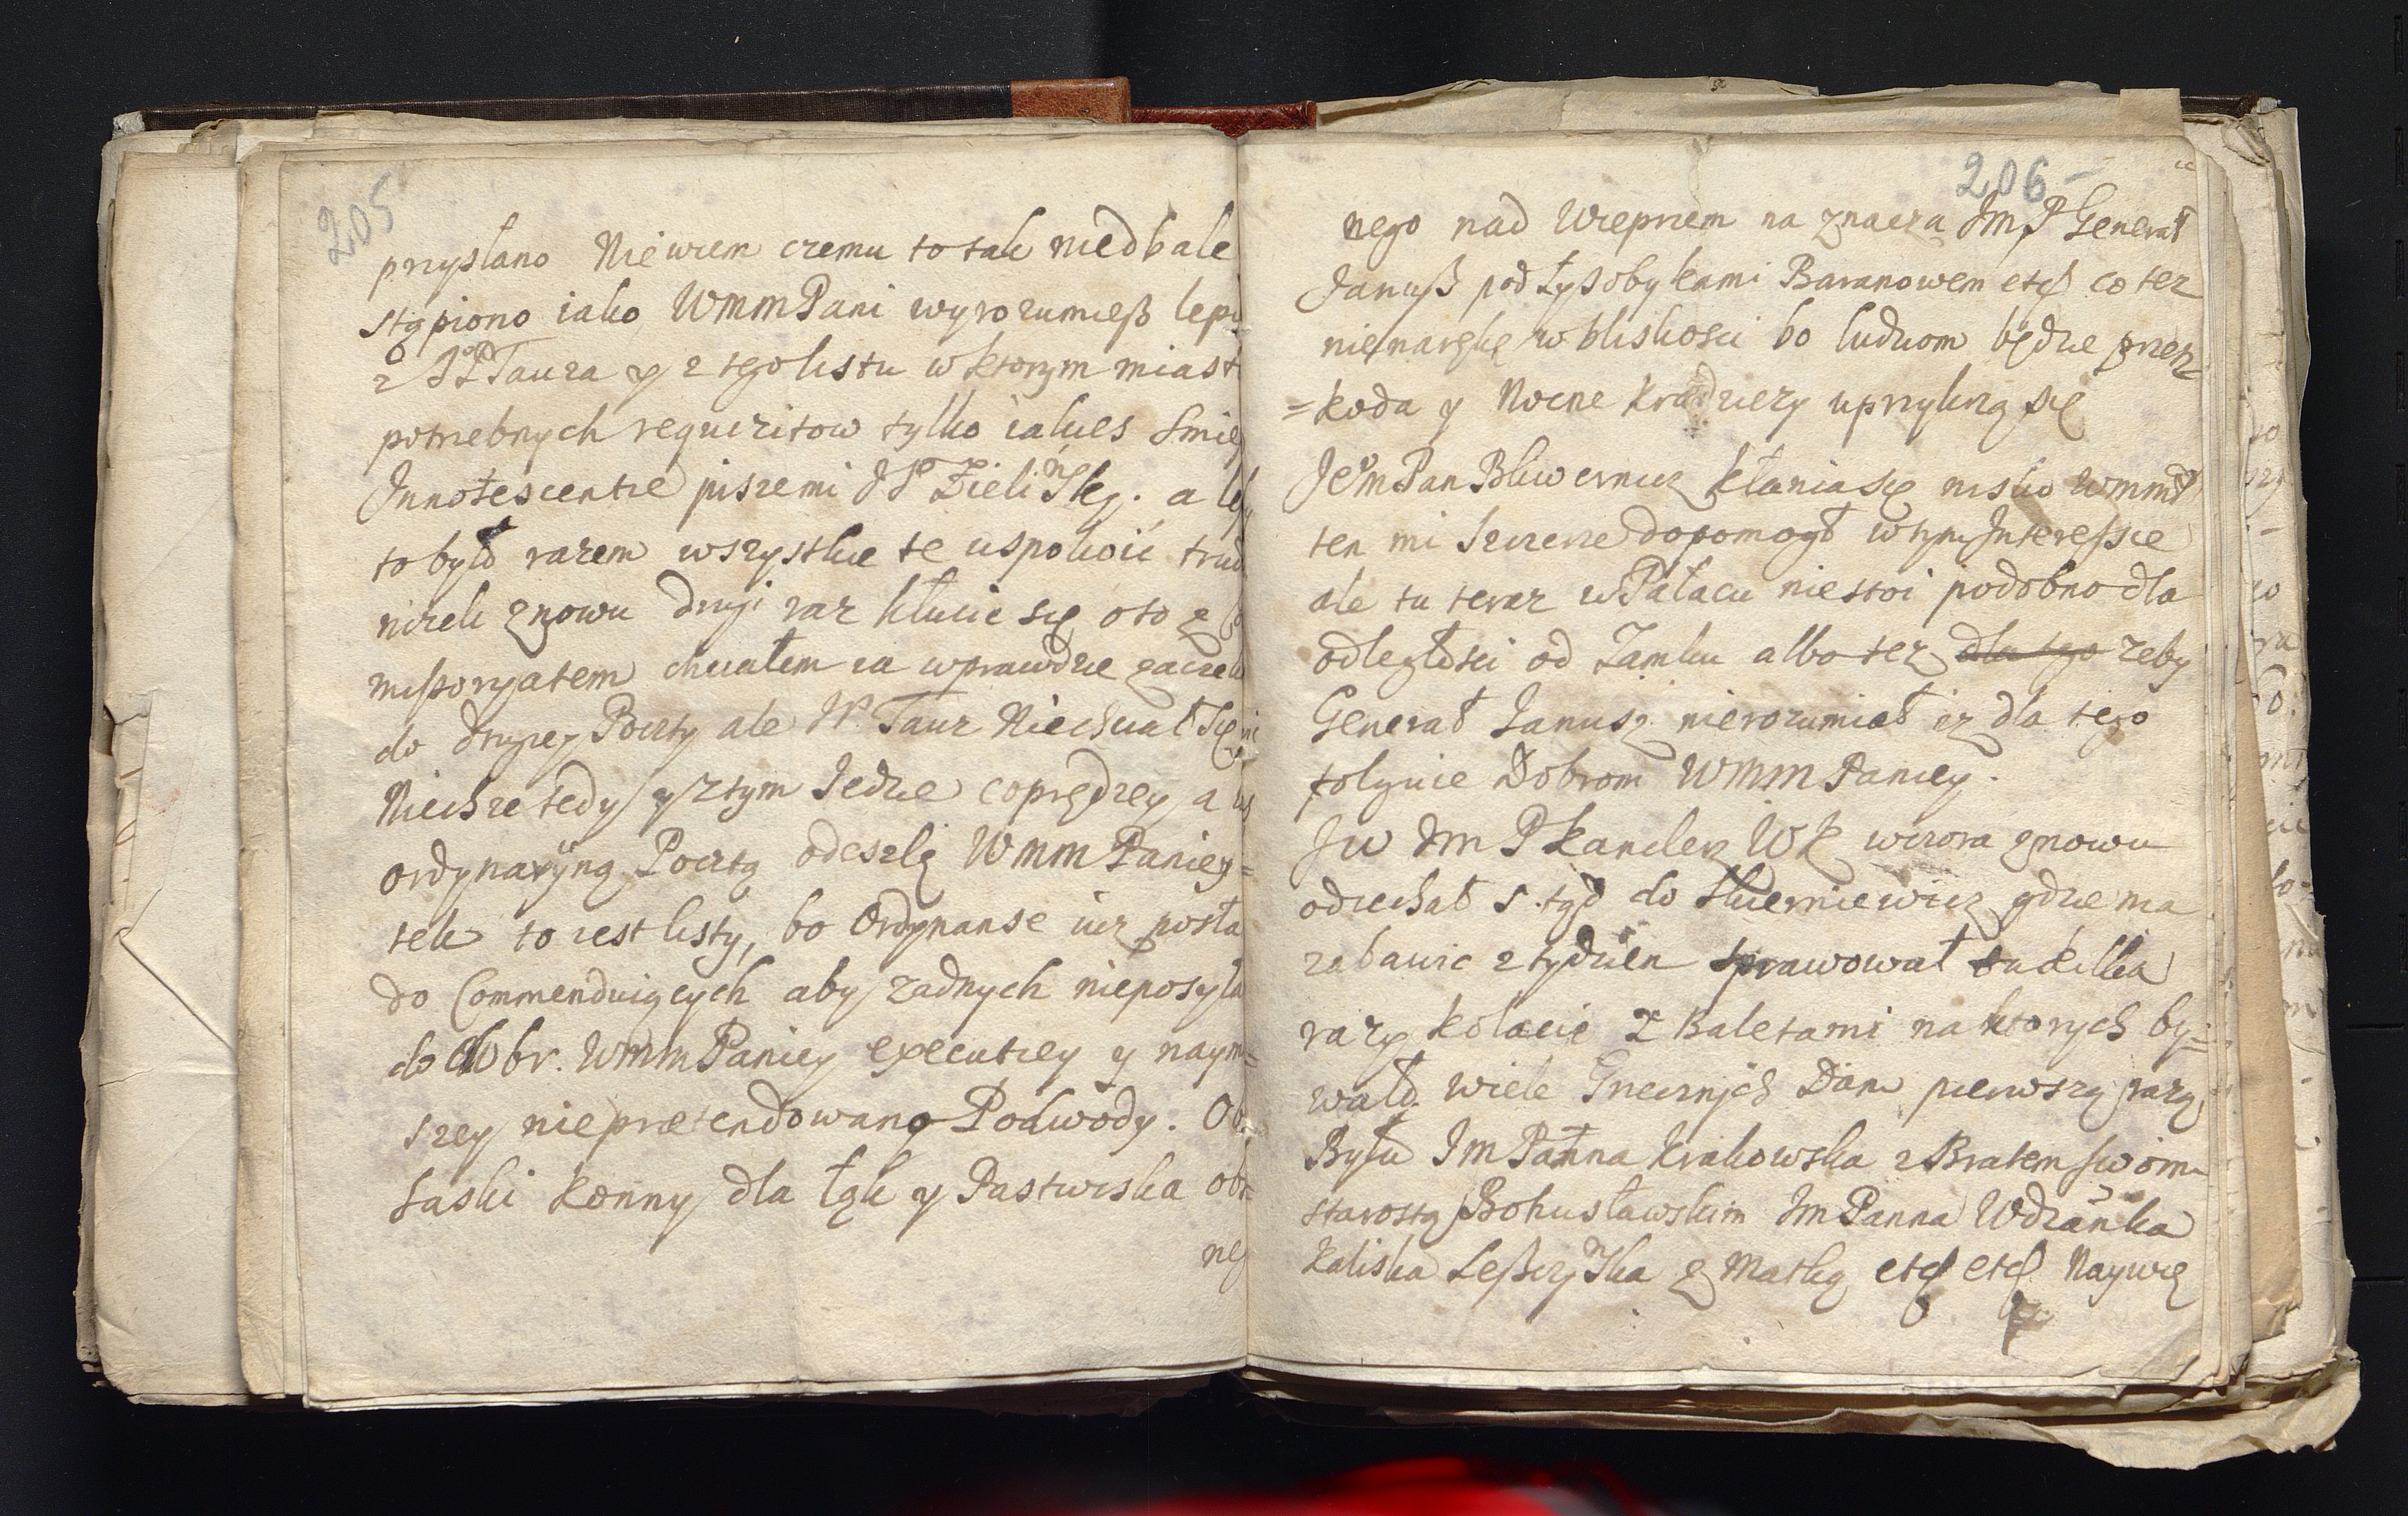 205
przysłano Niewiem czemu to tak niedbale
stąpiono iako WMM Pani wyrozumiesz lepi
z JP Taura y z tego listu w ktorym miast
potrzebnych requizitow tylko iakies
Innotescentie pisze mi JP Zielińsky. a
to było razem wszystkie te uspokoić trud
nizeli znowu drugi raz kłucic się oto z
missoryatem chciałem ia wprawdzie zaczek
do drugiey Poczty ale JP. Taur Niechciał
Niechze tedy y z tym Jedzie coprędzey, a
ordynaryiną Pocztą odeszlę WMM Paniey=
tek to iest listy, bo Ordynanse iuz posła
do Commenduiących aby zadnych nieposyła
do dobr. WMM Paniey executiey y naym=
szey nieprætendowano Podwody. Ob.
saski konny dla łąk y Pastwiska obr=
neg
206
nego nad Wieprzem na znacza JmP Generał
Janusz pod Łysobykami Baranowem etc co tez
nie narękę w bliskosci bo ludziom będzie przez=
=koda y Nocne kradziezy uprzykrzą się
JeomPan Bliwernicz kłania się nisko WMMP
ten mi szczerze dopomogł w tym Interessie
ale tu teraz w Pałacu niestoi podobno dla
odległości od Zamku albo tez dla tego zeby
Generał Janusz nierozumiał iz dla tego
folguie Dobrom WMM Paniey.
JW Jm P Kanclerz WK wczora znowu
odiechał s. tąd do Skierniewicz gdzie ma
zabawic z tydzien sprawował tu kilka
razy kolacie z Baletami na ktorych by=
wało wiele Grzecznych Dam pierwszy razy
Była JmPanna Krakowska z Bratem swoim
starostą Bohusławskim JmPanna Wdzanka
Kaliska Leszczyńska z Matką etc etc Naywię